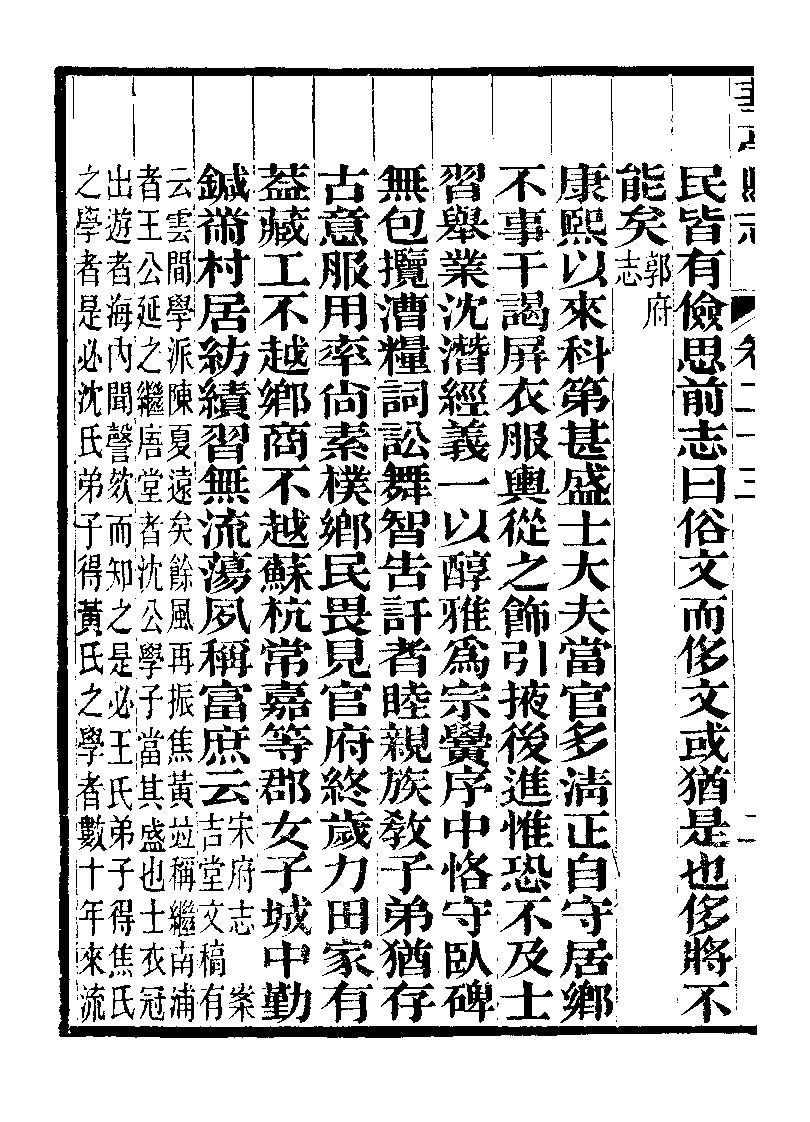 民皆有儉思前志曰俗文而侈文或猶是也侈將不
能矣郭府志
康熙以來科第甚盛士大夫當官多淸正自守居鄉
不事干謁屏衣服輿從之飾引掖後進惟恐不及士
習舉業沈潛經義一以醇雅爲宗黌序中恪守臥碑
無包攬漕糧詞訟舞智吿訐者睦親族敎子弟猶存
古意服用率尙素樸鄉民畏見官府終歲力田家有
葢藏工不越鄉商不越蘇杭常嘉等郡女子城中勤
鍼黹村居紡績習無流蕩夙稱富庶云宋府志 案
吉堂文稿有
云雲間學派陳夏遠矣餘風再振焦黃竝稱繼南浦
者王公延之繼唐堂者沈公學子當其盛也士衣冠
出遊者海內聞聲欬而知之是必王氏弟子得焦氏
之學者是必沈氏弟子得黃氏之學者數十年來流
華亭縣志 卷二十三 二